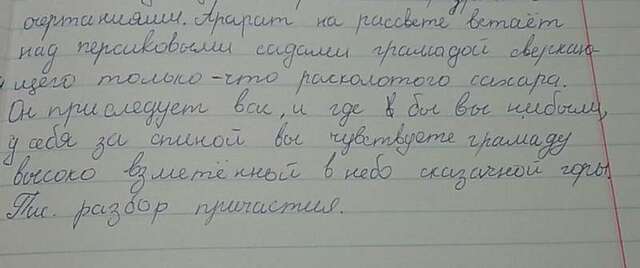 очертаниями. Арарат на рассвете встаёт
над персиковыми садами грамадой сверкаю-
щего только-что расколотого сахара.
Он приследует вас, и где б бы вы нибыли,
у себя за спиной вы чувствуете грамаду
высоко взметённый в небо сказачной горы.
Пис. разбор причастия.